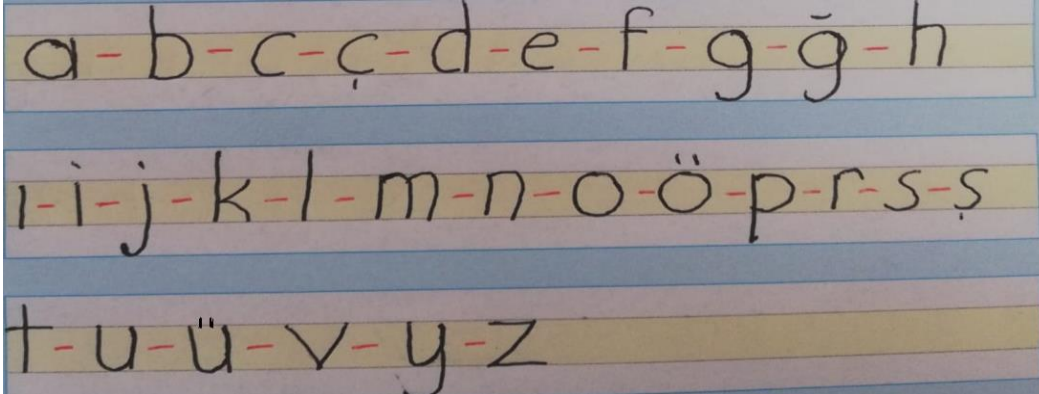 a-b-c-ç-d-e-f-g-ğ-h
ı-i-j-k-l-m-n-o-ö-p-r-s-ş
t-u-ü-v-y-z